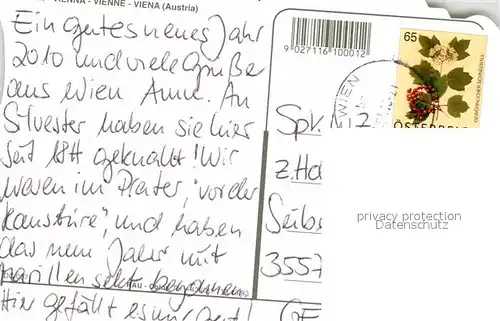 VIENNA - VIENNE - VIENA (Austria)
Ein gutes neues Jahr
2010 und viele Grüße
aus Wien Anne. An
Silvester haben sie hier
seit 18H geknallt! Wir
waren im Prater, "vor der
Haustüre", und haben
das neue Jahr mit
Marillensekt begonnen
Hier gefällt es mir gut!
9 027116 100012
WIEN
65
GEWÖHNLICHER SCHNEEBALL
ÖSTERREICH
Spv.
z. Ha
Seibe
3557
privacy protection
Datenschutz